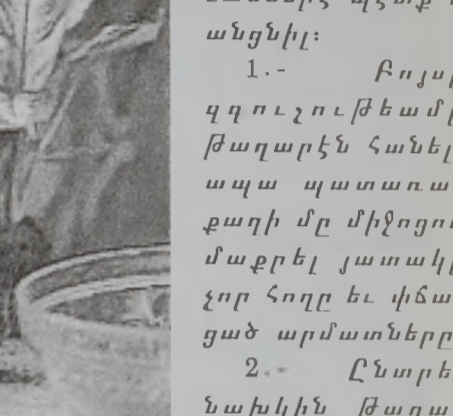 անցնիլ:
1.- Բոյսը
զգուշութեամբ
թաղարէն հանել
ապա պատառա
քաղի մը միջոցո
մաքրել յատակի
չոր հողը եւ փճա
ցած արմատները
2.- Ընտրե
նախկին թաղա